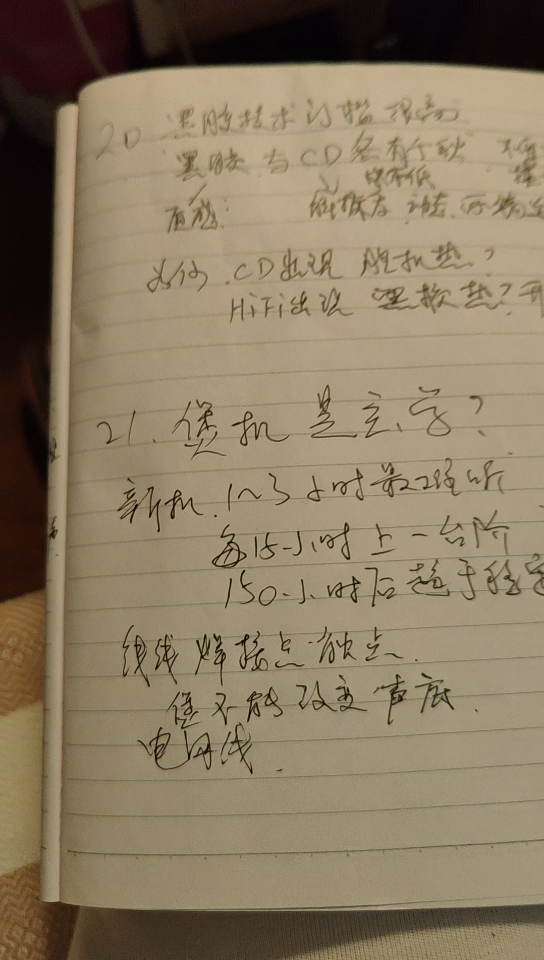 20 黑胶技术门槛很高
黑胶与CD各有千秋 不
低
直观:
如何.CD出现 胆机热?
HiFi出现 黑胶热?
21.煲机是玄学?
新机.1~3小时最难听
每15小时上一台阶
150小时后趋于稳定
线线焊接点 触点.
煲不能改变声底.
电网线.